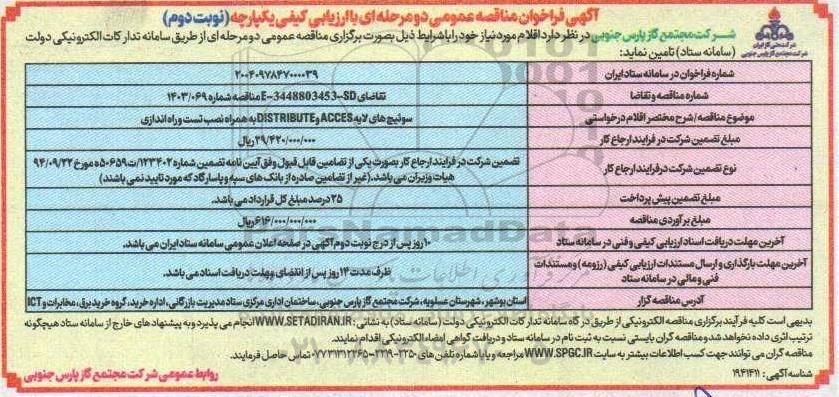 آگهی فراخوان مناقصه عمومی دو مرحله ای با ارزیابی کیفی یکپارچه (نوبت دوم)
شرکت ملی گاز ایران
شرکت مجتمع گاز پارس جنوبی
شرکت مجتمع گاز پارس جنوبی در نظر دارد اقلام مورد نیاز خود را با شرایط ذیل بصورت برگزاری مناقصه عمومی دو مرحله ای از طریق سامانه تدارکات الکترونیکی دولت
(سامانه ستاد) تامین نماید:
شماره فراخوان در سامانه ستاد ایران ۲۰۰۴۰۹۷۸۴۷۰۰۰۰۳۹
شماره مناقصه و تقاضا تقاضای E-3448803453-SD مناقصه شماره ۱۴۰۳/۰۶۹
موضوع مناقصه/شرح مختصر اقلام درخواستی سوئیچ های لایه ACCES و DISTRIBUTE به همراه نصب تست و راه اندازی
مبلغ تضمین شرکت در فرایند ارجاع کار ۲۹/۴۲۰/۰۰۰/۰۰۰ ریال
نوع تضمین شرکت در فرایند ارجاع کار تضمین شرکت در فرایند ارجاع کار بصورت یکی از تضامین قابل قبول وفق آیین نامه تضمین شماره ۱۲۳۴۰۲/ت۵۰۶۵۹ه مورخ ۹۴/۰۹/۲۲
هیات وزیران می باشد. (غیر از تضامین صادره از بانک های سپه و پاسارگاد که مورد تایید نمی باشند)
مبلغ تضمین پیش پرداخت ۲۵ درصد مبلغ کل قرارداد می باشد.
مبلغ برآوردی مناقصه ۶۱۴/۰۰۰/۰۰۰/۰۰۰ ریال
آخرین مهلت دریافت اسناد ارزیابی کیفی و فنی در سامانه ستاد ۱۰ روز پس از درج نوبت دوم آگهی در صفحه اعلان عمومی سامانه ستاد ایران می باشد.
آخرین مهلت بارگذاری و ارسال مستندات ارزیابی کیفی (رزومه) و مستندات
فنی و مالی در سامانه ستاد ظرف مدت ۱۴ روز پس از انقضای مهلت دریافت اسناد می باشد.
آدرس مناقصه گزار استان بوشهر، شهرستان عسلویه، شرکت مجتمع گاز پارس جنوبی، ساختمان اداری مرکزی ستاد مدیریت بازرگانی، اداره خرید، گروه خرید برق، مخابرات و ICT
بدیهی است کلیه فرآیند برگزاری مناقصه الکترونیکی از طریق درگاه سامانه تدارکات الکترونیکی دولت (سامانه ستاد) به نشانی: WWW.SETADIRAN.IR انجام می پذیرد و به پیشنهاد های خارج از سامانه ستاد هیچگونه
ترتیب اثری داده نخواهد شد و مناقصه گران بایستی نسبت به ثبت نام در سامانه ستاد و دریافت گواهی امضاء الکترونیکی اقدام نمایند.
مناقصه گران می توانند جهت کسب اطلاعات بیشتر به سایت WWW.SPGC.IR مراجعه و یا با شماره تلفن های تماس حاصل فرمایند.
شناسه آگهی: ۱۹۴۱۴۱۱
روابط عمومی شرکت مجتمع گاز پارس جنوبی
ParsNamadData